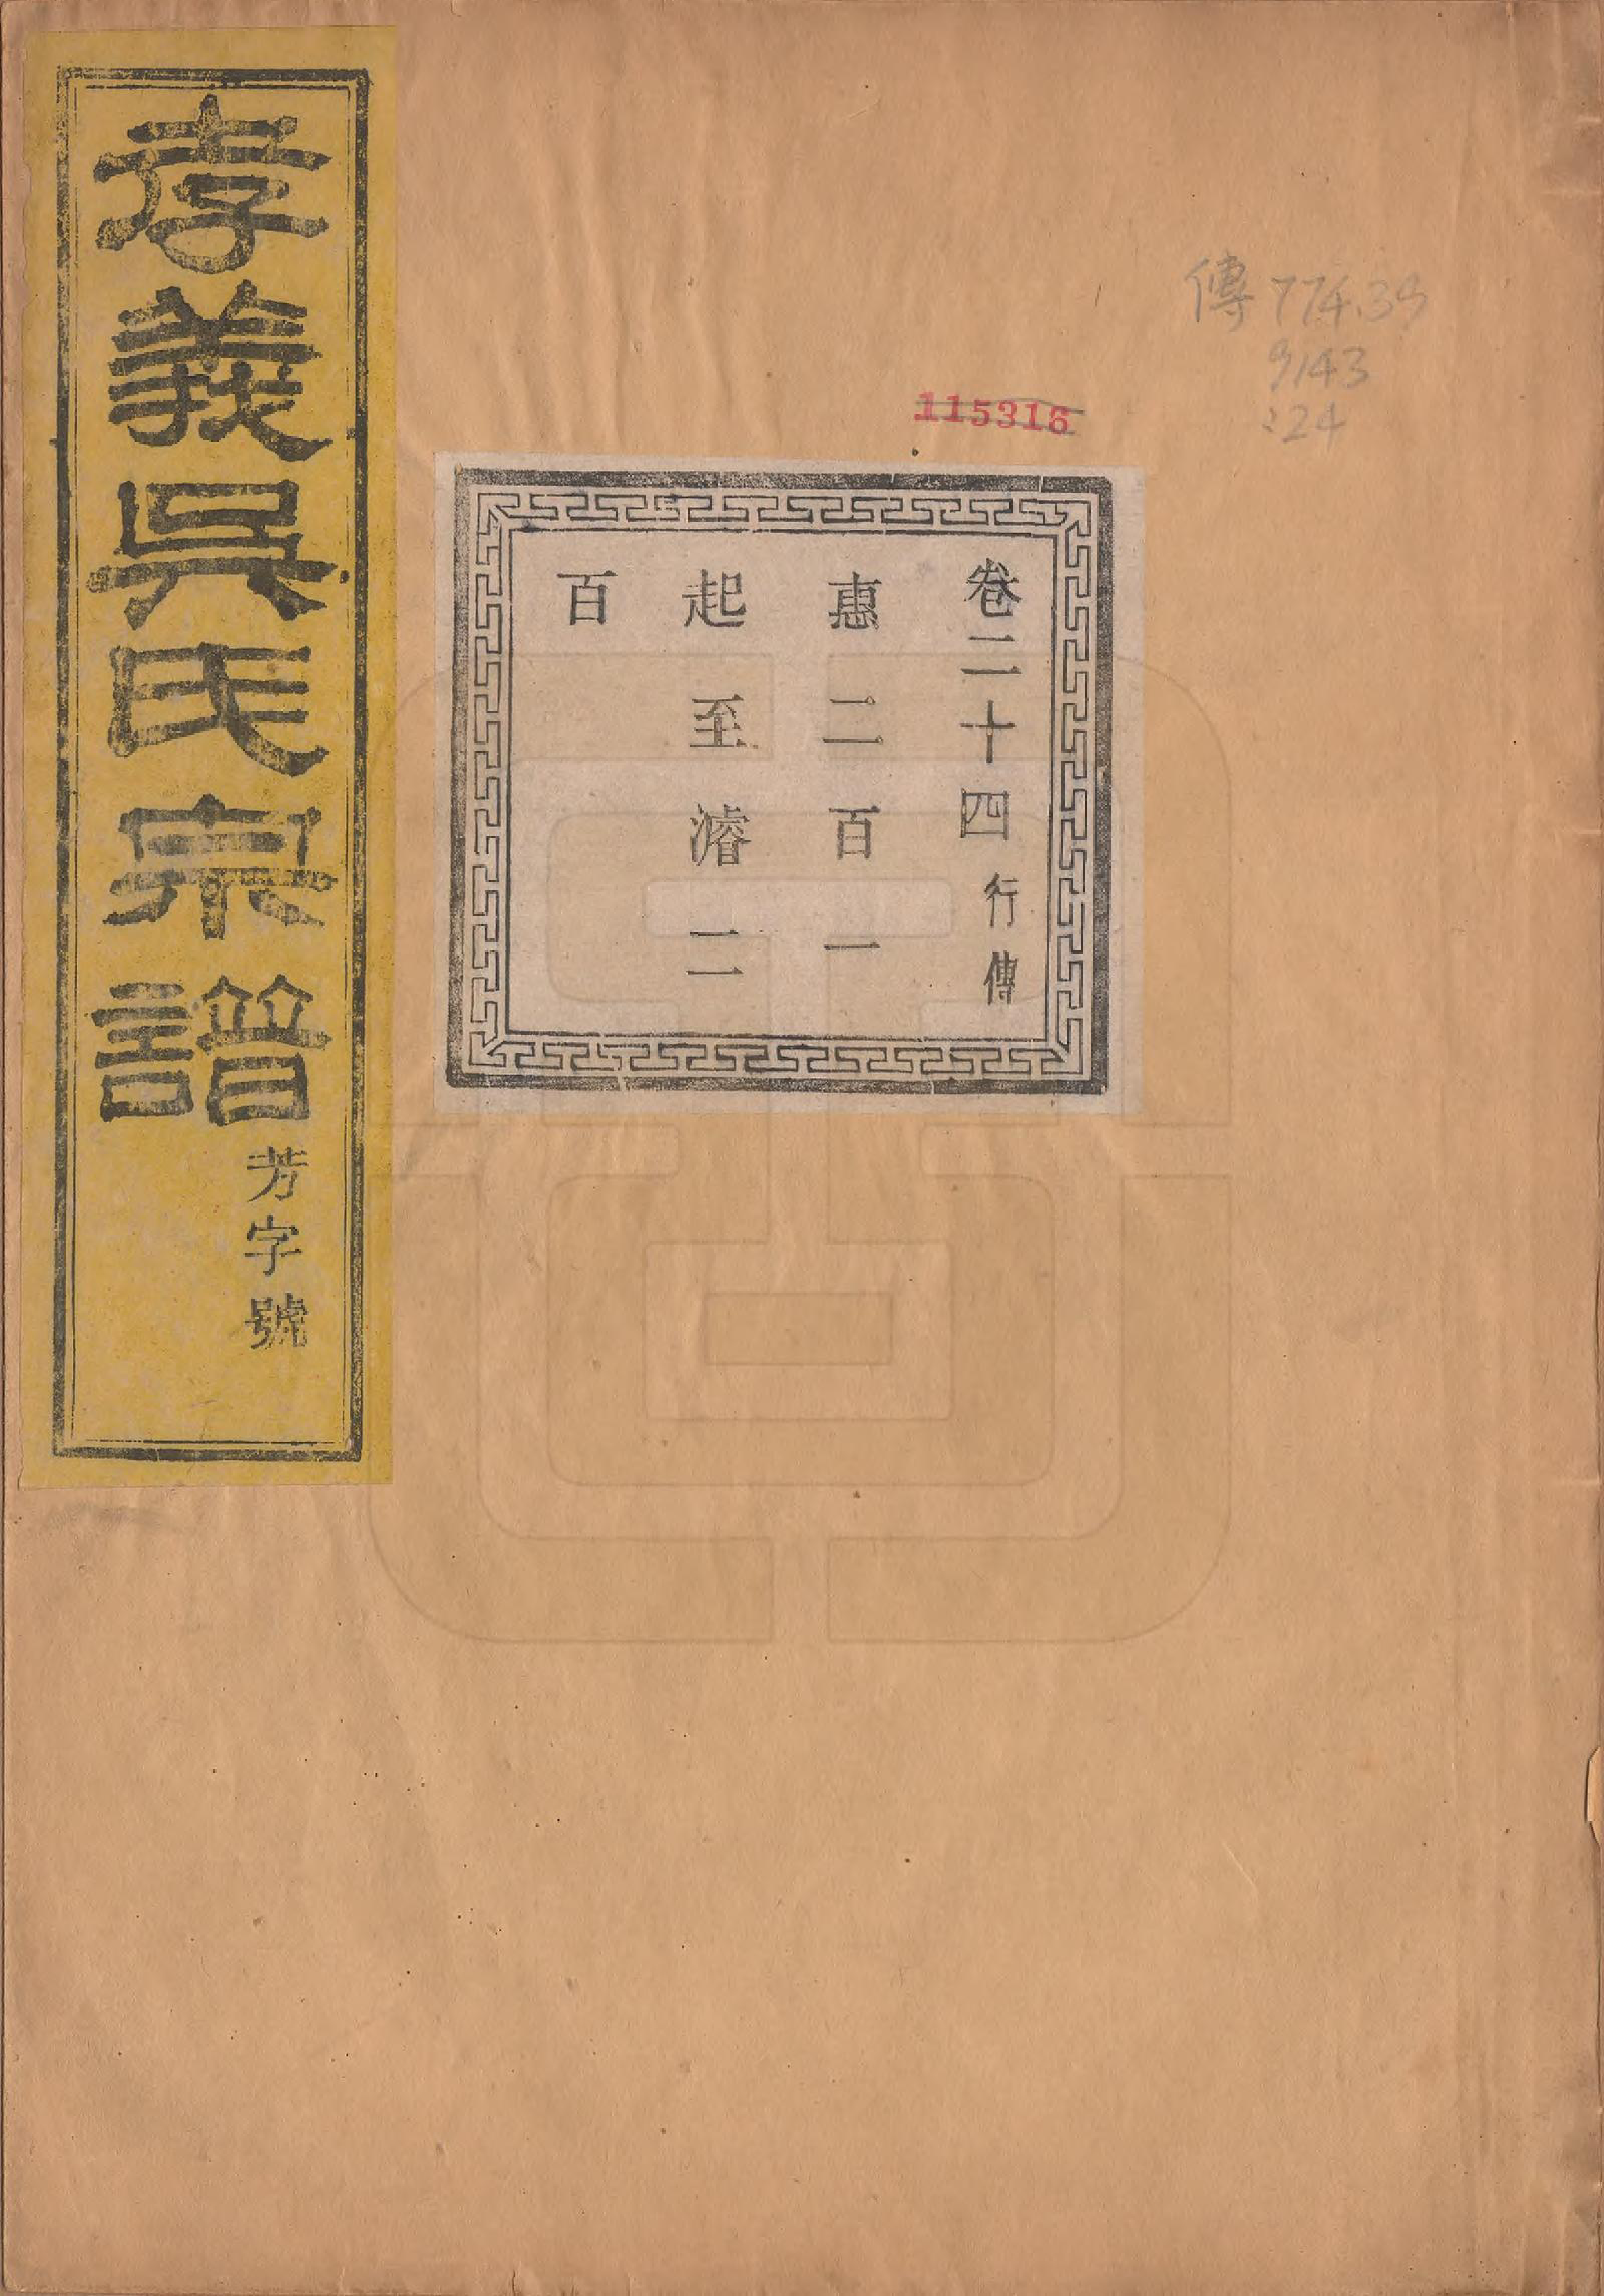 孝義吳氏宗譜
芳字號
卷二十四 行傳
惠二百一
起至濬二
百
115316
傳 774.39
9143
:24